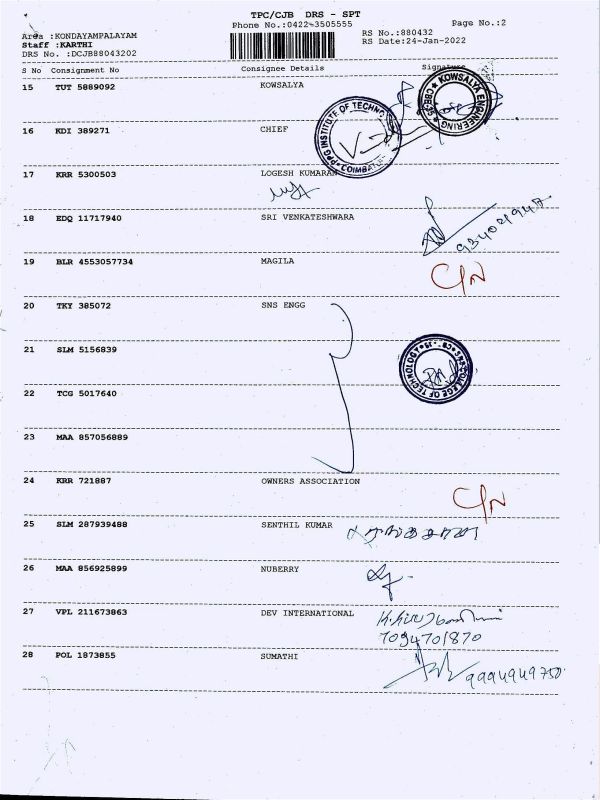 TPC/CJB DRS - SPT
Phone No.:0422-3505555
Page No.:2
Area :KONDAYAMPALAYAM
Staff :KARTHI
DRS No. :DCJB88043202
RS No.:880432
RS Date:24-Jan-2022
S No Consignment No Consignee Details Signature
15 TUT 5889092 KOWSALYA
KOWSALYA ENGINEERING
16 KDI 389271 CHIEF
PPG INSTITUTE OF TECHNO
COIMBATORE
17 KRR 5300503 LOGESH KUMARAN
18 EDQ 11717940 SRI VENKATESHWARA
19 BLR 4553057734 MAGILA C/N
20 TKY 385072 SNS ENGG
21 SLM 5156839
SNS COLLEGE OF TECHNOLOGY
22 TCG 5017640
23 MAA 857056889
24 KRR 721887 OWNERS ASSOCIATION C/N
25 SLM 287939488 SENTHIL KUMAR
26 MAA 856925899 NUBERRY
27 VPL 211673863 DEV INTERNATIONAL
7094701870
28 POL 1873855 SUMATHI 9994949750